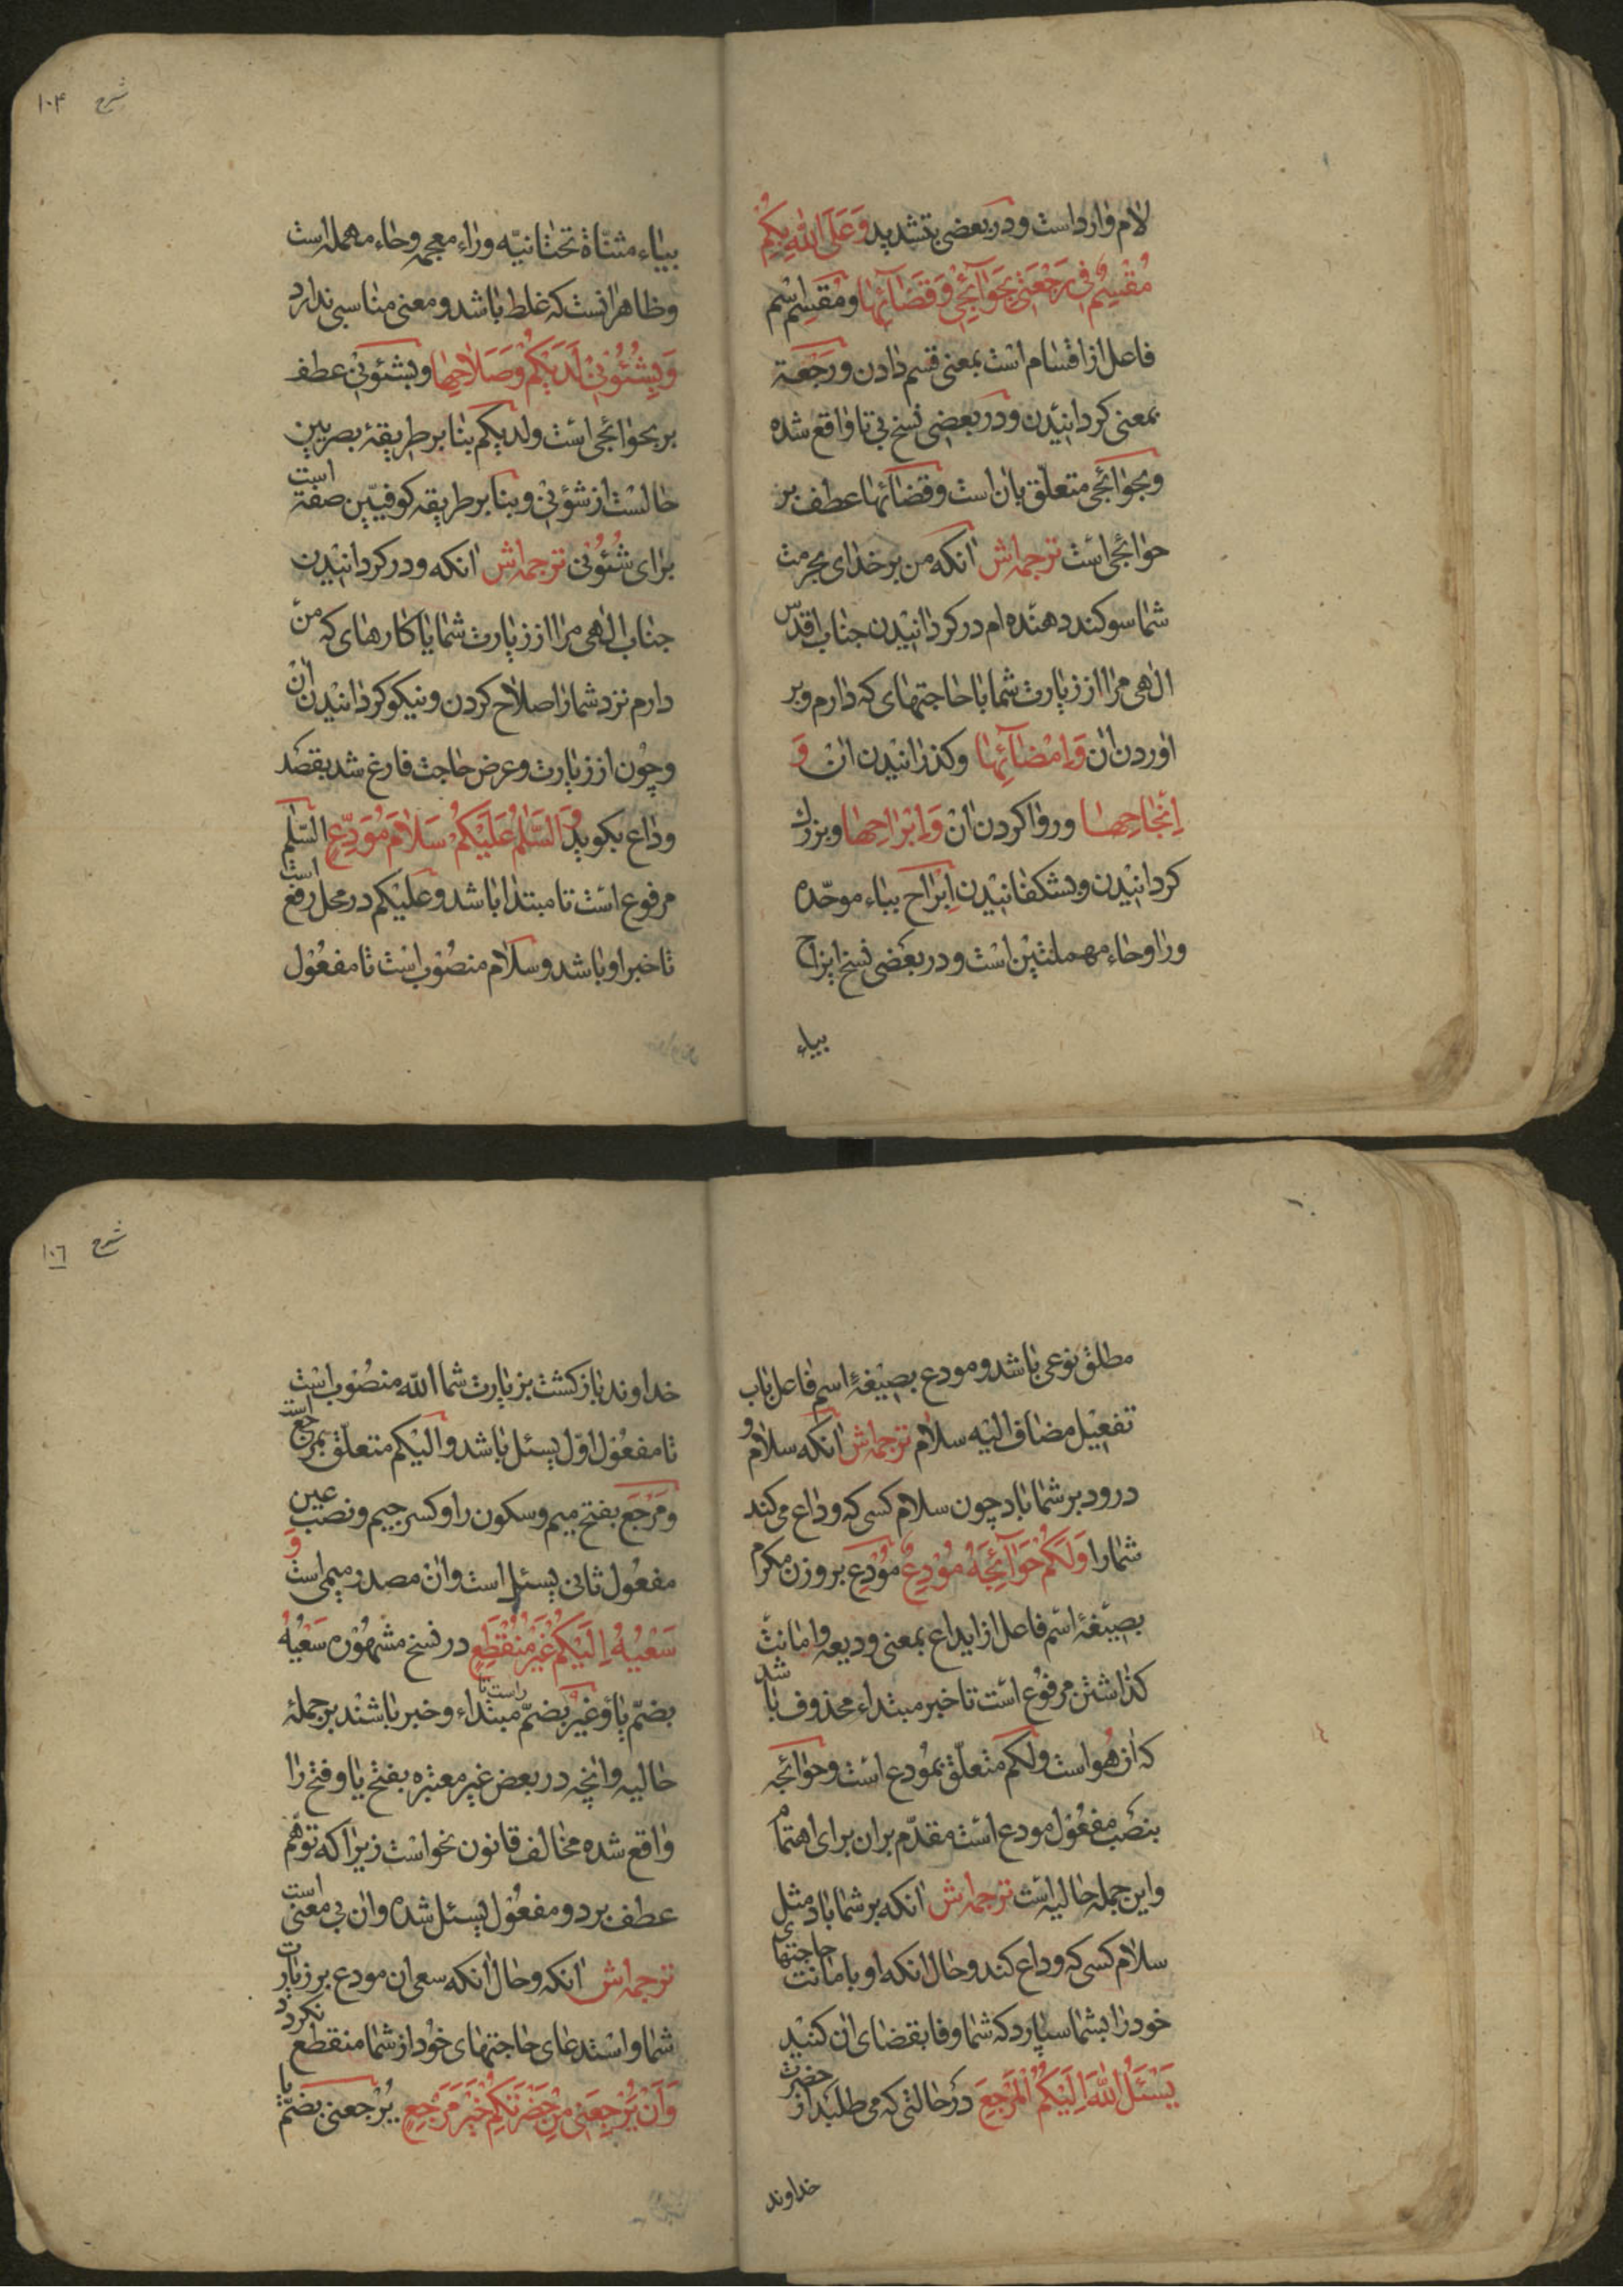 لام وارد است و در بعضی بتشدید وَعَلَی اللهِ بِکُم
مُقْسِمٌ فی رَجْعَتی بِحَوآئِجی وَقَضآئِها ومُقسِم اسْم
فاعل از اقسام است بمعنی قسم دادن و رَجْعَة
بمعنی کردانیدن و در بعضی نسخ بی تا واقع شده
وبحوائجی متعلق بان است وقضآئها عطف بر
حوائجی است ترجمه‌اش انکه من بر خدای بحرمت
شما سوکند دهنده ام در کردانیدن جناب اقدس
الهی مرا از زیارت شما با حاجتهای که دارم و بر
اوردن ان وَاِمْضآئِها وکذرانیدن ان وَ
اِنْجاحِها وروا کردن ان وَاِبْراحِها وبزرك
کردانیدن وبشکفانیدن اِبْراح بباء موحّده
ورا وحاء مهملتین است و در بعضی نسخ ایزاح
بیاء
شرح ۱۰۴
بیاء مثنّاة تحتانیّه وزاء معجمه وحاء مهمله است
وظاهر انست که غلط باشد و معنی مناسبی ندارد
وَبِشُئُونی لَدَیْکُم وَصَلاحِها وبشئونی عطف
بر بحوائجی است ولدیکم بنا بر طریقۀ بصریین
حالست از شؤنی وبنا بر طریقه کوفیّین صفة است
برای شُئُونی ترجمه‌اش انکه و در کردانیدن
جناب الهی مرا از زیارت شما یا کارهای که من
دارم نزد شما را اصلاح کردن ونیکو کردانیدن ان
وچون از زیارت وعرض حاجت فارغ شد بقصد
وداع بکوید وَالسَّلمُ عَلَیْکُم سَلامَ مُوَدِّعٍ السّلم
مرفوع است تا مبتدا باشد وعلیکم در محل رفع است
تا خبر او باشد وسلام منصوب است تا مفعول
مطلق نوعی باشد و مودع بصیغۀ اسم فاعل باب
تفعیل مضاف الیه سلام ترجمه‌اش انکه سلام و
درود بر شما باد چون سلام کسی که وداع می کند
شما را وَلَکُمْ حَوآئِجَهُ مُودِعٌ مُودِع بر وزن مکرم
بصیغۀ اسم فاعل از ایداع بمعنی ودیعه وامانت
کذاشتن مرفوع است تا خبر مبتداء محذوف باشد
که ان هُو است ولکم متعلّق بمودع است وحوائجه
بنصب مفعول مودع است مقدّم بران برای اهتمام
واین جمله حالیه است ترجمه‌اش انکه بر شما باد مثل
سلام کسی که وداع کند وحال انکه او بامانت حاجتهای
خود را بشما سپارد که شما وفا بقضای ان کنید
یَسْئَلُ اللهَ اِلَیْکُمُ الْمَرْجِعَ در حالتی که می طلبد از حضرت
خداوند
شرح ۱۰٦
خداوند باز کشت بزیارت شما الله منصوب است
تا مفعول اوّل یسئل باشد والیکم متعلّق بمرجع است
ومَرْجَع بفتح میم وسکون را وکسر جیم ونصب عین
مفعول ثانی یسئل است وان مصدر میمی است وَ
سَعْیُهُ اِلَیْکُمْ غَیْرُ مُنْقَطِعٍ در نسخ مشهوره سَعْیُهُ
بضمّ یا وغیر بضمّ راست تا مبتداء وخبر باشند بر جملۀ
حالیه وانچه در بعض غیر معتبره بفتح یا وفتح را
واقع شده مخالف قانون نحو است زیرا که توهّم
عطف بر دو مفعول یسئل شده وان بی معنی است
ترجمه‌اش انکه وحال انکه سعی ان مودع بر زیارت
شما واستدعای حاجتهای خود از شما منقطع نکردد
وَاَنْ یُرْجِعَنی مِنْ حَضْرَتِکُمْ خَیْرَ مَرْجِعٍ یُرْجعنی بضمّ یا